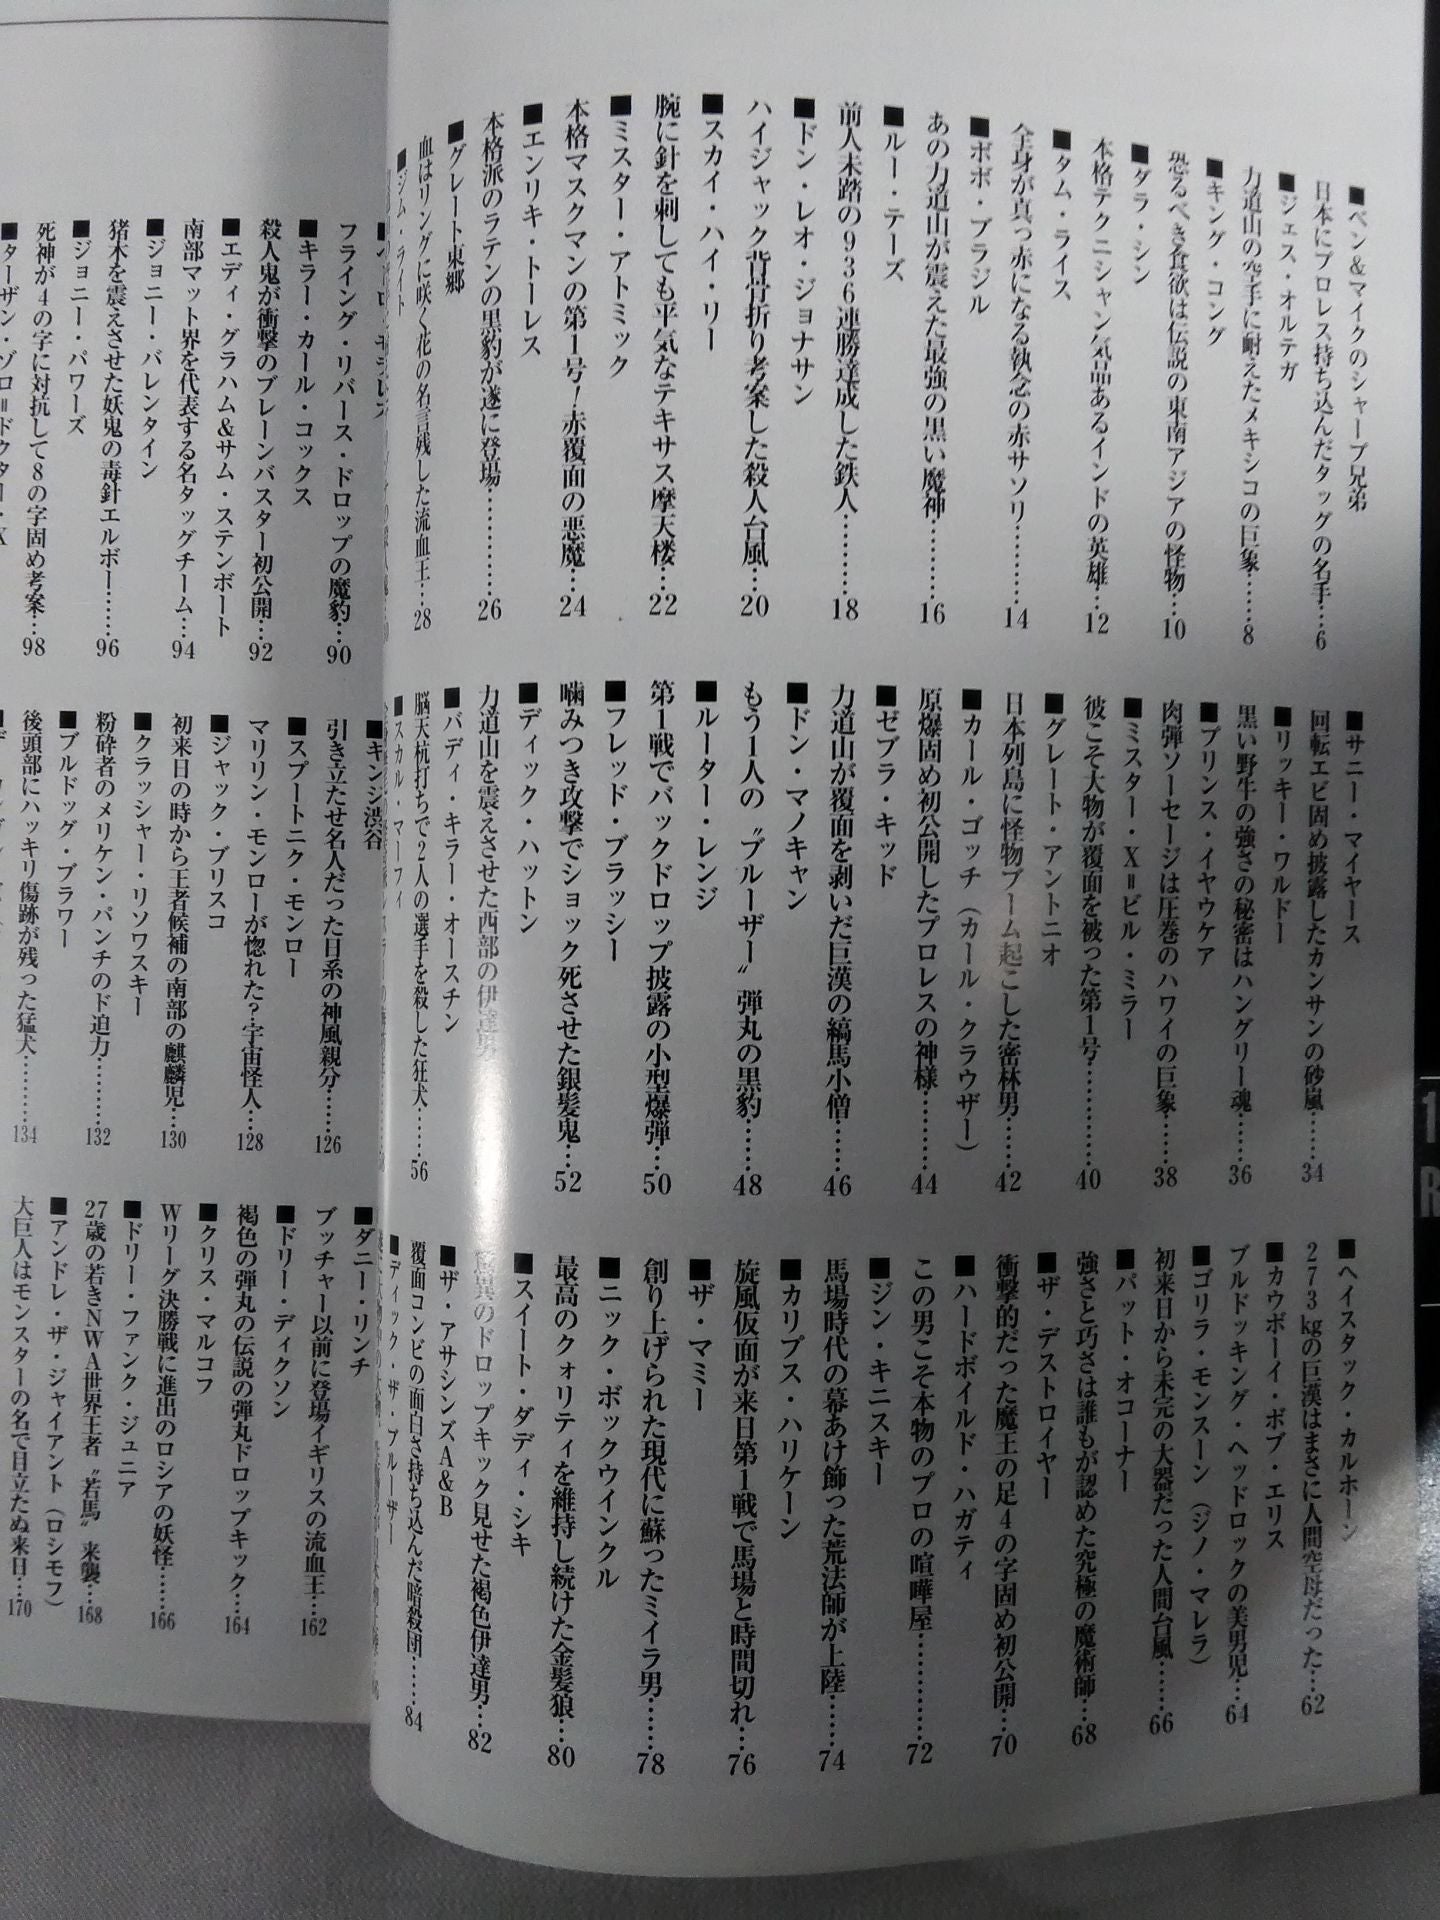 ■ベン&マイクのシャープ兄弟
日本にプロレス持ち込んだタッグの名手…6
■ジェス・オルテガ
力道山の空手に耐えたメキシコの巨象……8
■キング・コング
恐るべき食欲は伝説の東南アジアの怪物…10
■ダラ・シン
本格テクニシャン気品あるインドの英雄…12
■タム・ライス
全身が真っ赤になる執念の赤サソリ………14
■ボボ・ブラジル
あの力道山が震えた最強の黒い魔神………16
■ルー・テーズ
前人未踏の936連勝達成した鉄人………18
■ドン・レオ・ジョナサン
ハイジャック背骨折り考案した殺人台風…20
■スカイ・ハイ・リー
腕に針を刺しても平気なテキサス摩天楼…22
■ミスター・アトミック
本格マスクマンの第1号!赤覆面の悪魔…24
■エンリキ・トーレス
本格派のラテンの黒豹が遂に登場…………26
■グレート東郷
血はリングに咲く花の名言残した流血王…28
■ジム・ライト
■サニー・マイヤース
回転エビ固め披露したカンサンの砂嵐……34
■リッキー・ワルドー
黒い野牛の強さの秘密はハングリー魂……36
■プリンス・イヤウケア
肉弾ソーセージは圧巻のハワイの巨象……38
■ミスター・X=ビル・ミラー
彼こそ大物が覆面を被った第1号…………40
■グレート・アントニオ
日本列島に怪物ブーム起こした密林男……42
■カール・ゴッチ(カール・クラウザー)
原爆固め初公開したプロレスの神様………44
■ゼブラ・キッド
力道山が覆面を剥いだ巨漢の縞馬小僧……46
■ドン・マノキャン
もう1人の〝ブルーザー〟弾丸の黒豹……48
■ルーター・レンジ
第1戦でバックドロップ披露の小型爆弾…50
■フレッド・ブラッシー
噛みつき攻撃でショック死させた銀髪鬼…52
■ディック・ハットン
力道山を震えさせた西部の伊達男
■バディ・キラー・オースチン
脳天杭打ちで2人の選手を殺した狂犬……56
■スカル・マーフィ
■ヘイスタック・カルホーン
273kgの巨漢はまさに人間空母だった…62
■カウボーイ・ボブ・エリス
ブルドッキング・ヘッドロックの美男児…64
■ゴリラ・モンスーン(ジノ・マレラ)
初来日から未完の大器だった人間台風……66
■パット・オコーナー
強さと巧さは誰もが認めた究極の魔術師…68
■ザ・デストロイヤー
衝撃的だった魔王の足4の字固め初公開…70
■ハードボイルド・ハガティ
この男こそ本物のプロの喧嘩屋……………72
■ジン・キニスキー
馬場時代の幕あけ飾った荒法師が上陸……74
■カリプス・ハリケーン
旋風仮面が来日第1戦で馬場と時間切れ…76
■ザ・マミー
創り上げられた現代に蘇ったミイラ男……78
■ニック・ボックウインクル
最高のクォリティを維持し続けた金髪狼…80
■スイート・ダディ・シキ
驚異のドロップキック見せた褐色伊達男…82
■ザ・アサシンズA&B
覆面コンビの面白さ持ち込んだ暗殺団……84
■ディック・ザ・ブルーザー
フライング・リバース・ドロップの魔豹…90
■キラー・カール・コックス
殺人鬼が衝撃のブレーンバスター初公開…92
■エディ・グラハム&サム・ステンボート
南部マット界を代表する名タッグチーム…94
■ジョニー・バレンタイン
猪木を震えさせた妖鬼の毒針エルボー……96
■ジョニー・パワーズ
死神が4の字に対抗して8の字固め考案…98
■ターザン・ゾロ=ドクター・X
■キンジ渋谷
引き立たせ名人だった日系の神風親分……126
■スプートニク・モンロー
マリリン・モンローが惚れた?宇宙怪人…128
■ジャック・ブリスコ
初来日の時から王者候補の南部の麒麟児…130
■クラッシャー・リソワスキー
粉砕者のメリケン・パンチのド迫力………132
■ブルドッグ・ブラワー
後頭部にハッキリ傷跡が残った猛犬………134
■ダニー・リンチ
ブッチャー以前に登場イギリスの流血王…162
■ドリー・ディクソン
褐色の弾丸の伝説の弾丸ドロップキック…164
■クリス・マルコフ
Wリーグ決勝戦に進出のロシアの妖怪……166
■ドリー・ファンク・ジュニア
27歳の若きNWA世界王者〝若馬〟来襲…168
■アンドレ・ザ・ジャイアント(ロシモフ)
大巨人はモンスターの名で目立たぬ来日…170